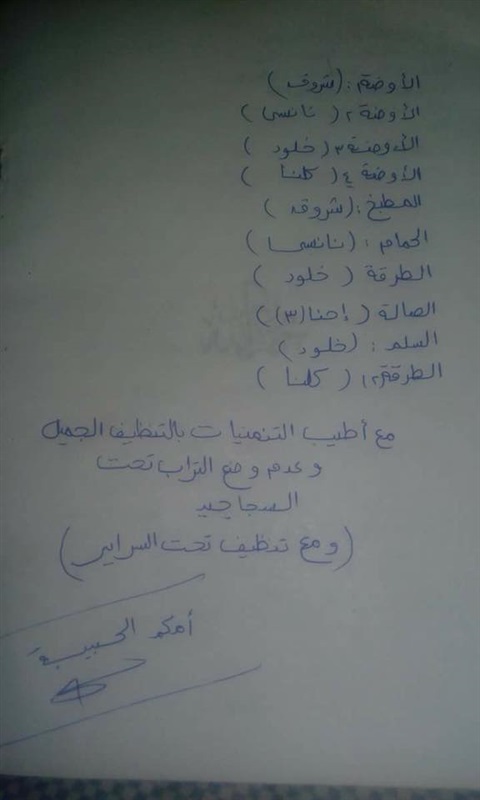 الأوضة : (شروق)
الأوضة ٢ ( نانسى )
الأوضة ٣ ( خلود )
الأوضة ٤ ( كلنا )
المطبخ : (شروق )
الحمام : ( نانسى )
الطرقة ( خلود )
الصالة ( إحنا (٣) )
السلم : ( خلود )
الطرقة ٢ ( كلنا )
مع أطيب التنمنيات بالتنظيف الجميل
وعدم وضع التراب تحت
السجاجيد
( ومع تنظيف تحت السراير )
أمكم الحبيبة